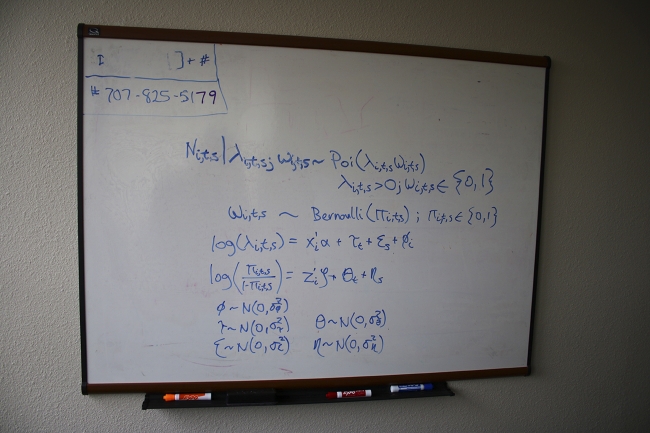 I ] + #
# 707-825-5179
N_{i,t,s} | λ_{i,t,s}; ω_{i,t,s} ~ Poi(λ_{i,t,s} ω_{i,t,s})
λ_{i,t,s} > 0; ω_{i,t,s} ∈ {0,1}
ω_{i,t,s} ~ Bernoulli(π_{i,t,s}); π_{i,t,s} ∈ {0,1}
log(λ_{i,t,s}) = x'_i α + τ_t + ε_s + φ_i
log(π_{i,t,s} / 1-π_{i,t,s}) = z'_i ζ + θ_t + η_s
φ ~ N(0,σ²_φ)
τ ~ N(0,σ²_τ) θ ~ N(0,σ²_θ)
ε ~ N(0,σ²_ε) η ~ N(0,σ²_η)